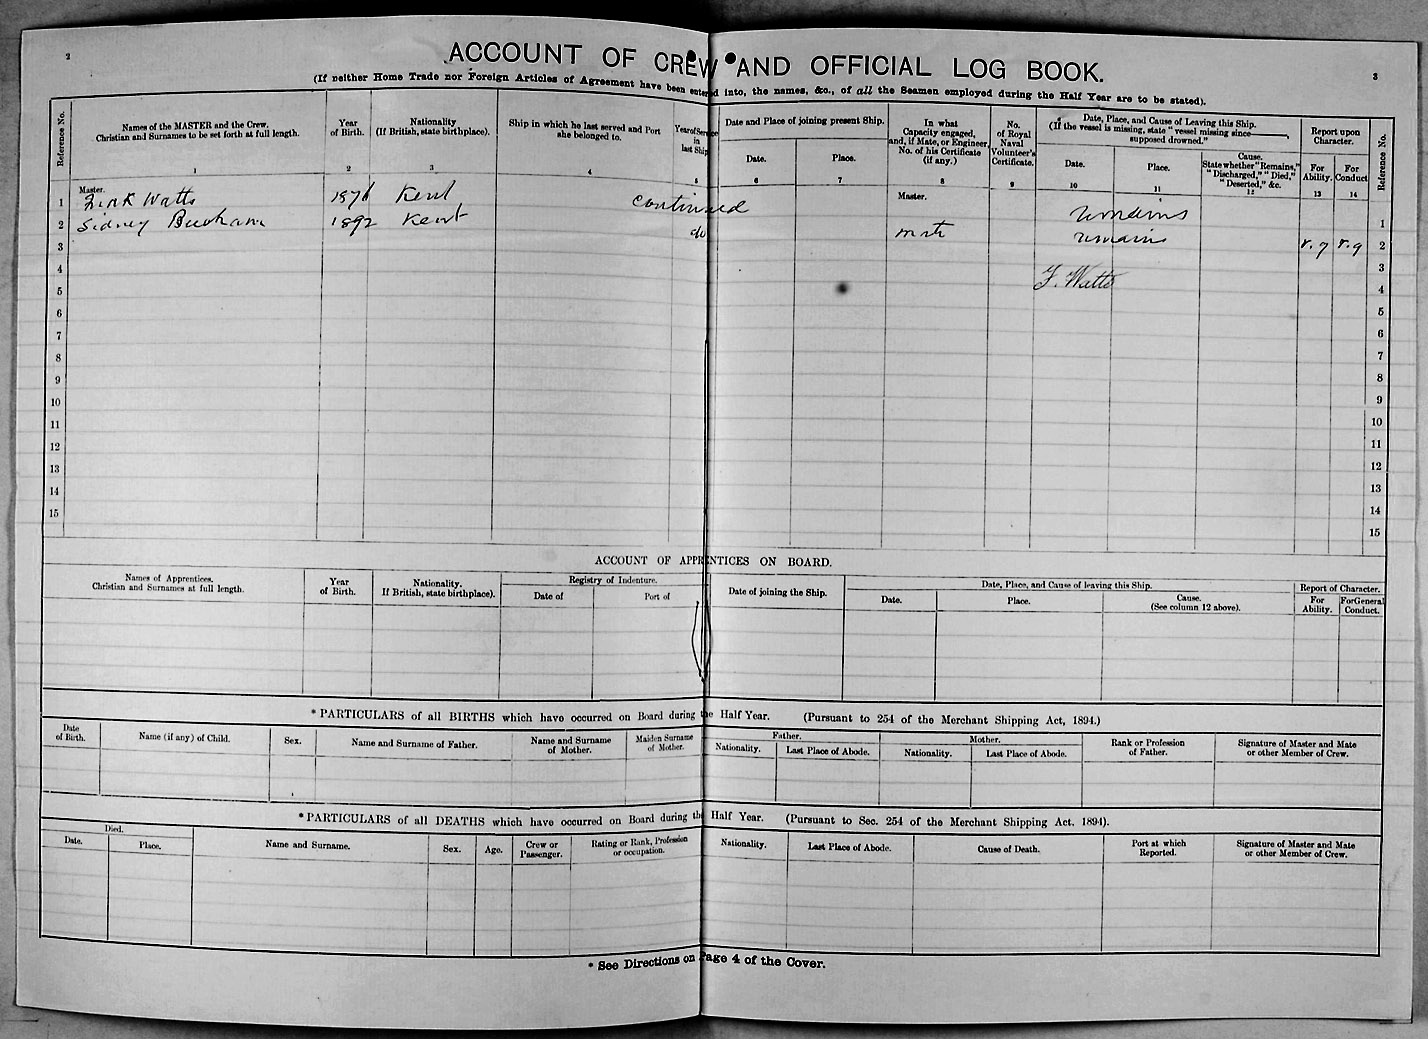 2
ACCOUNT OF CREW AND OFFICIAL LOG BOOK.
3
(If neither Home Trade nor Foreign Articles of Agreement have been entered into, the names, &c., of all the Seamen employed during the Half Year are to be stated).
Reference No.
Names of the MASTER and the Crew.
Christian and Surnames to be set forth at full length.
1
Year
of Birth.
2
Nationality
(If British, state birthplace).
3
Ship in which he last served and Port
she belonged to.
4
Year of Service
in
last Ship
5
Date and Place of joining present Ship.
Date.
6
Place.
7
In what
Capacity engaged,
and, if Mate, or Engineer,
No. of his Certificate
(if any.)
8
No.
of Royal
Naval
Volunteer's
Certificate.
9
Date, Place, and Cause of Leaving this Ship.
(If the vessel is missing, state "vessel missing since ———,
supposed drowned."
Date.
10
Place.
11
Cause.
State whether "Remains,"
"Discharged," "Died,"
"Deserted," &c.
12
Report upon
Character.
For
Ability.
13
For
Conduct
14
Reference No.
Master.
1 Watts 1876 Kent continued Master. remains 1
2 Sidney 1892 Kent do mate remains V.g V.g 2
3 3
4 F. Watts 4
5 5
6 6
7 7
8 8
9 9
10 10
11 11
12 12
13 13
14 14
15 15
ACCOUNT OF APPRENTICES ON BOARD.
Names of Apprentices.
Christian and Surnames at full length.
Year
of Birth.
Nationality.
If British, state birthplace).
Registry of Indenture.
Date of
Port of
Date of joining the Ship.
Date, Place, and Cause of leaving this Ship.
Date.
Place.
Cause.
(See column 12 above).
Report of Character.
For
Ability.
For General
Conduct.
* PARTICULARS of all BIRTHS which have occurred on Board during the Half Year. (Pursuant to 254 of the Merchant Shipping Act, 1894.)
Date
of Birth.
Name (if any) of Child.
Sex.
Name and Surname of Father.
Name and Surname
of Mother.
Maiden Surname
of Mother.
Father.
Nationality.
Last Place of Abode.
Mother.
Nationality.
Last Place of Abode.
Rank or Profession
of Father.
Signature of Master and Mate
or other Member of Crew.
* PARTICULARS of all DEATHS which have occurred on Board during the Half Year. (Pursuant to Sec. 254 of the Merchant Shipping Act. 1894).
Died.
Date.
Place.
Name and Surname.
Sex.
Age.
Crew or
Passenger.
Rating or Rank, Profession
or occupation.
Nationality.
Last Place of Abode.
Cause of Death.
Port at which
Reported.
Signature of Master and Mate
or other Member of Crew.
* See Directions on Page 4 of the Cover.